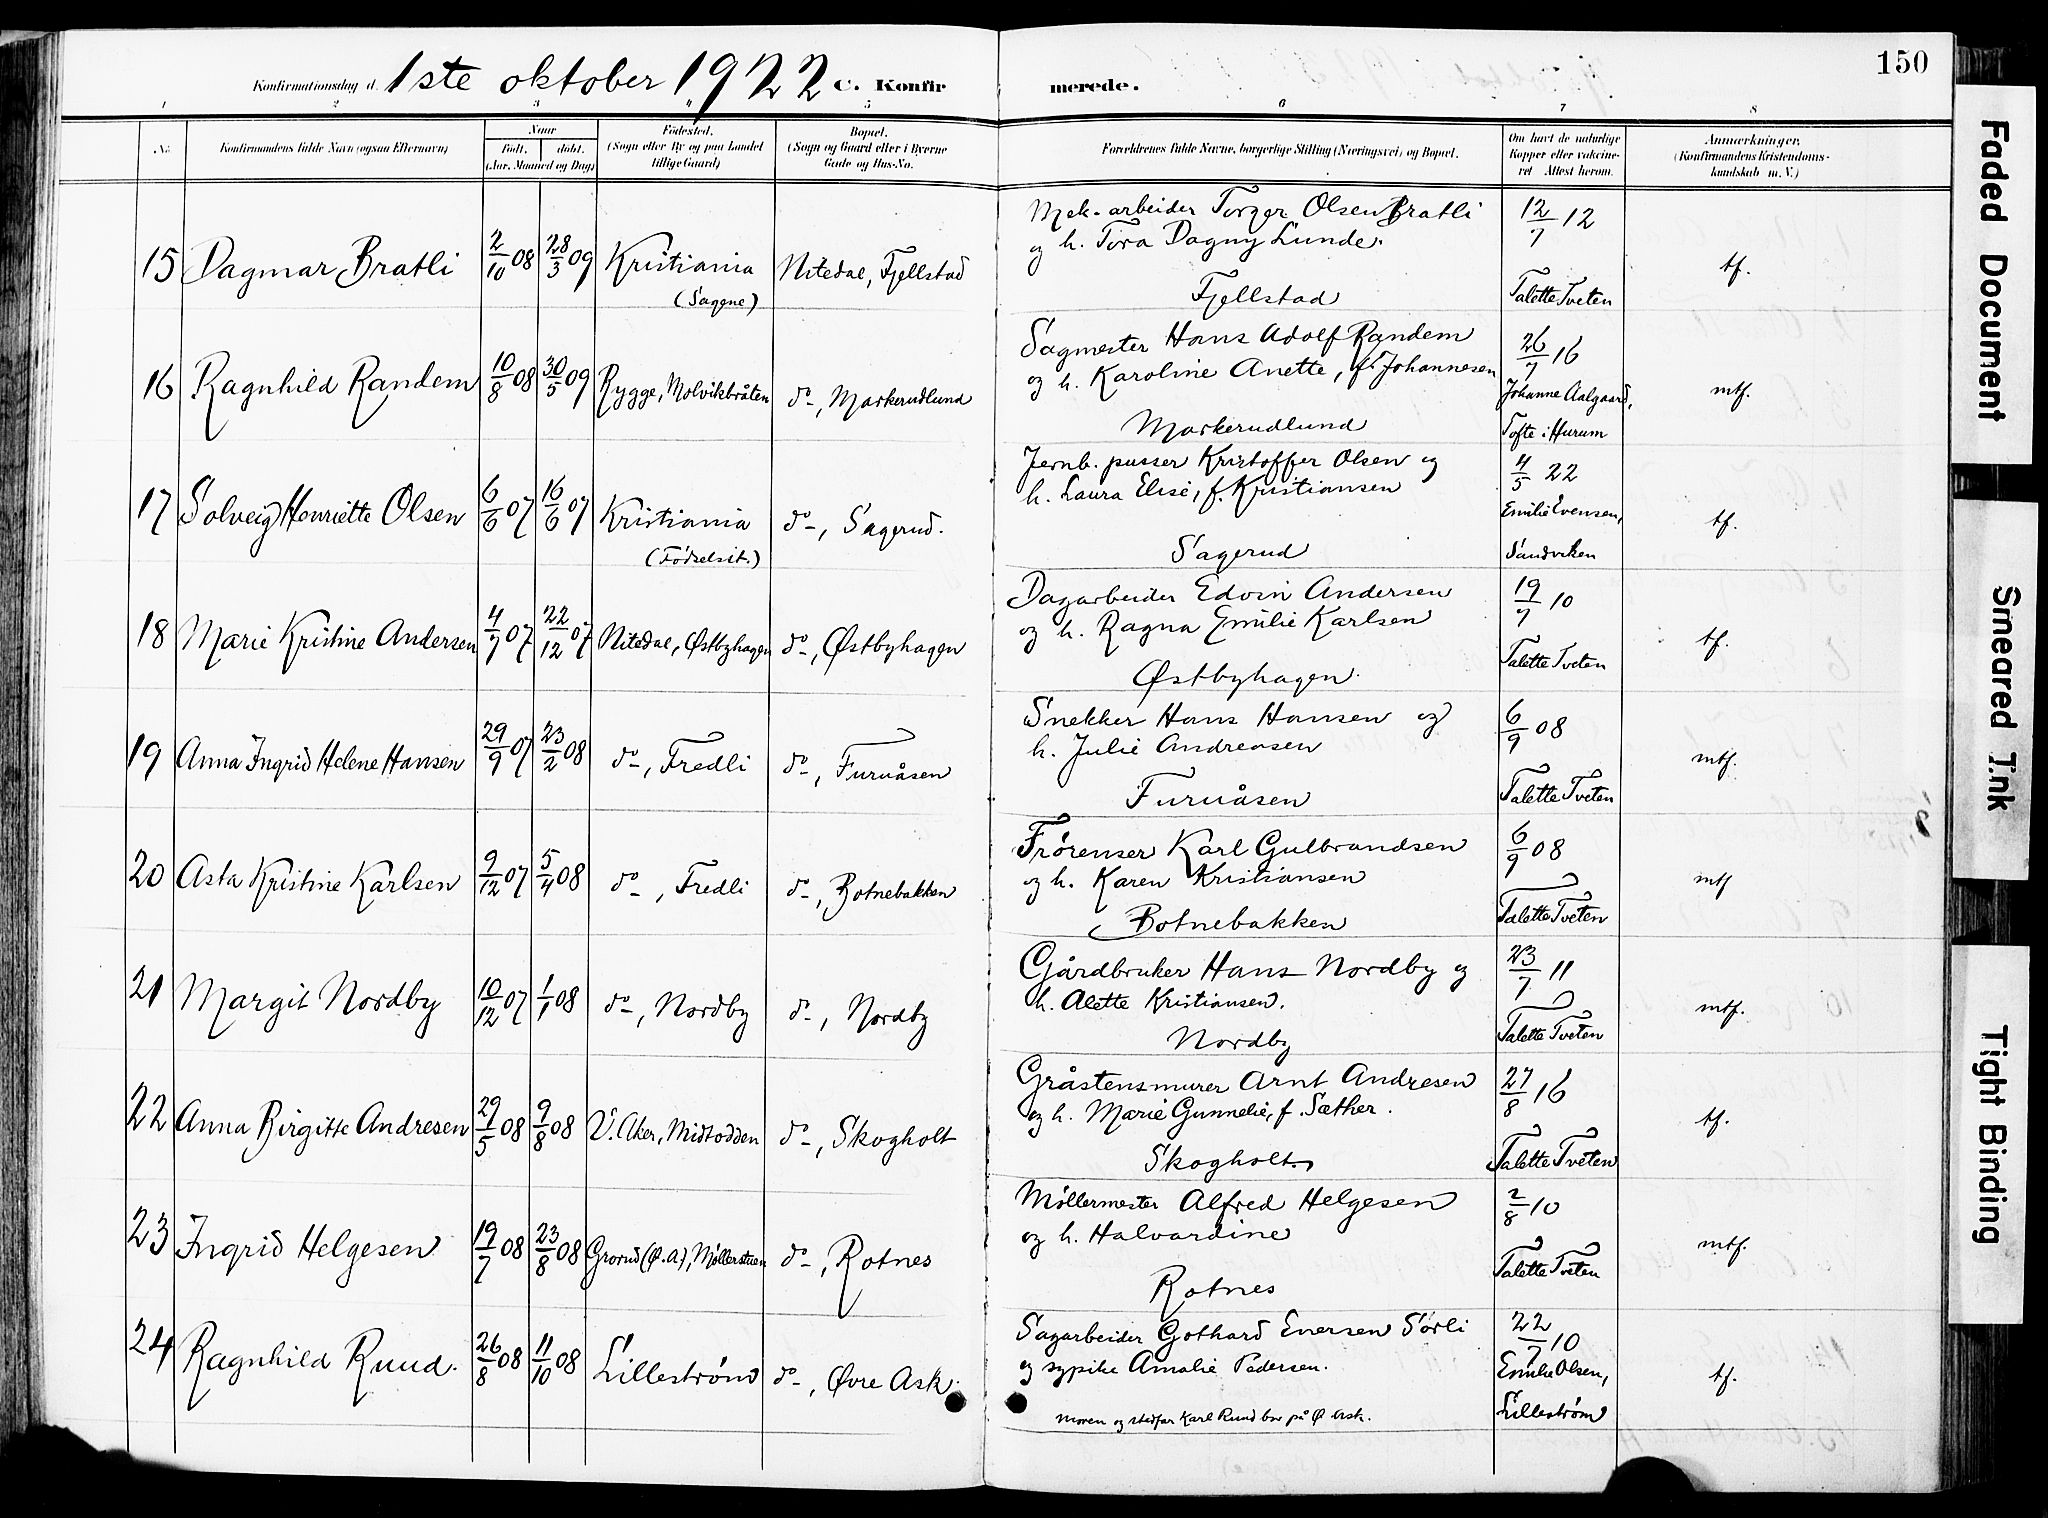 150
Konfirmationsdag d. 1ste oktober 1922 C. Konfirmerede.
1 2 3 4 5 6 7 8
No.
Konfirmandens fulde Navn (ogsaa Efternavn)
Naar
født. døbt.
(Aar, Maaned og Dag)
Fødested.
(Sogn eller By og paa Landet
tillige Gaard)
Bopæl.
(Sogn og Gaard eller i Byerne
Gade og Hus-No.
Forældrenes fulde Navne, borgerlige Stilling (Næringsvei) og Bopæl.
Om havt de naturlige
Kopper eller vakcine-
ret Attest herom.
Anmærkninger.
(Konfirmandens Kristendoms-
kundskab m. V.)
15 Dagmar Bratli 2/10 08 28/3 09 Kristiania (Sagene) Nitedal, Fjellstad
Mek. arbeider Torger Olsen Bratli
og h. Tora Dagny Lunde.
Fjellstad
12/7 12
Talette Tveten
tf.
16 Ragnhild Randem 10/8 08 30/5 09 Rygge, Molvikbråten do-, Markerudlund
Sagmester Hans Adolf Randem
og h. Karoline Anette, f. Johannesen
Markerudlund
26/7 16
Johanne Aalgaard,
Tofte i Hurum
mtf.
17 Solveig Henriette Olsen 6/6 07 16/6 07 Kristiania (Fødselsst.) do-, Sagerud.
Jernb. pusser Kristoffer Olsen og
h. Laura Elise, f. Kristiansen
Sagerud
4/5 22
Emilie Evensen,
Sandviken
tf.
18 Marie Kristine Andersen 4/7 07 22/12 07 Nitedal, Østbyhagen do-, Østbyhagen
Dagarbeider Edvin Andersen
og h. Ragna Emilie Karlsen
Østbyhagen
19/7 10
Talette Tveten
tf.
19 Anna Ingrid Helene Hansen 29/9 07 23/2 08 do-, Fredli do-, Furuåsen
Snekker Hans Hansen og
h. Julie Andreasen
Furuåsen
6/9 08
Talette Tveten
mtf.
20 Asta Kristine Karlsen 9/12 07 5/4 08 do-, Fredli do-, Botnebakken
Frørenser Karl Gulbrandsen
og h. Karen Kristiansen
Botnebakken
6/9 08
Talette Tveten
mtf
21 Margit Nordby 10/12 07 1/1 08 do-, Nordby do-, Nordby
Gårdbruker Hans Nordby og
h. Alette Kristiansen.
Nordby
23/7 11
Talette Tveten
mtf.
22 Anna Birgitte Andresen 29/5 08 9/8 08 V. Aker, Midtodden do-, Skogholt
Gråstensmurer Arnt Andresen
og h. Marie Gunnelie, f. Sæther.
Skogholt.
27/8 16
Talette Tveten
tf.
23 Ingrid Helgesen 19/7 08 23/8 08 Grorud (Ø.A.), Møllerstuen do-, Rotnes
Møllermester Alfred Helgesen
og h. Halvardine
Rotnes
2/8 10
Talette Tveten
mtf.
24 Ragnhild Ruud. 26/8 08 11/10 08 Lillestrøm do-, Øvre Ask.
Sagarbeider Gothard Evensen Sørli
og sypike Amalie Pedersen.
moren og stedfar Karl Ruud bor på Ø Ask.
22/7 10
Emilie Olsen,
Lillestrøm
tf.
Faded Document
Smeared Ink
Tight Binding